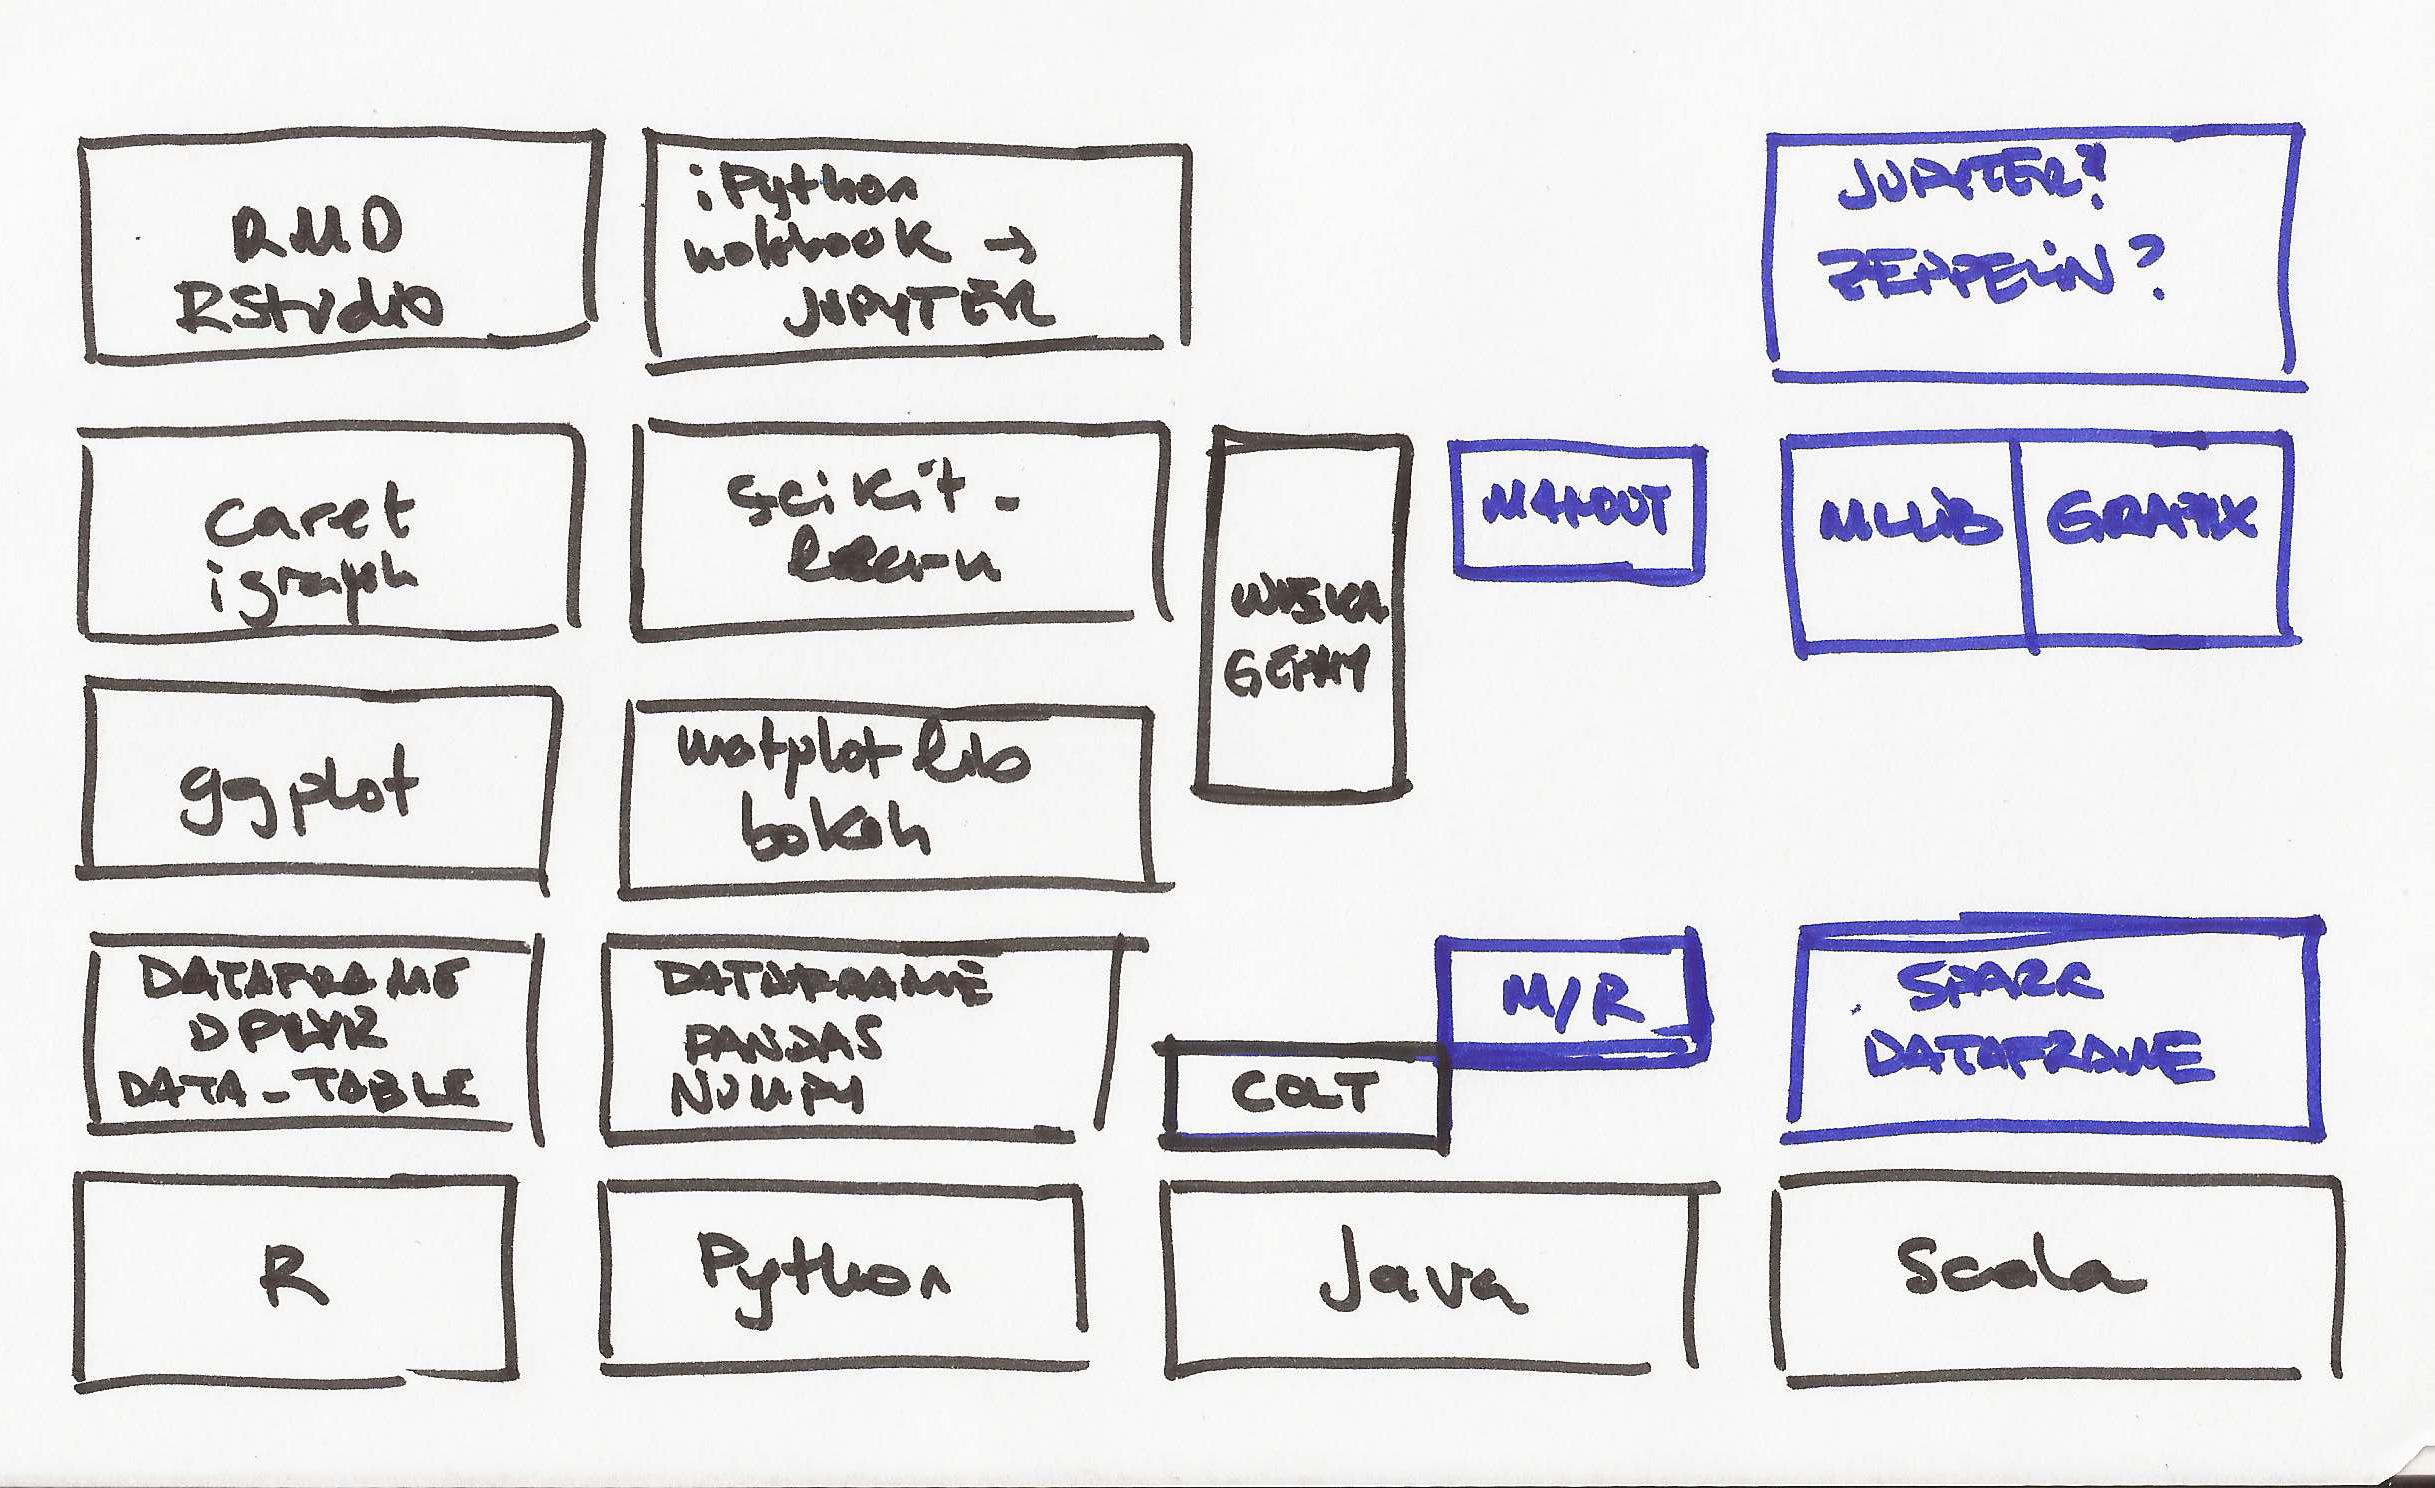 RMD
RStudio
iPython
notebook →
JUPYTER
JUPYTER?
ZEPPELIN?
caret
igraph
scikit-
learn
WEKA
GEPHY
MAHOUT
MLLIB
GRAPHX
ggplot
matplotlib
bokeh
DATAFRAME
DPLYR
DATA-TABLE
DATAFRAME
PANDAS
NUMPY
COLT
M/R
SPARK
DATAFRAME
R
Python
Java
Scala